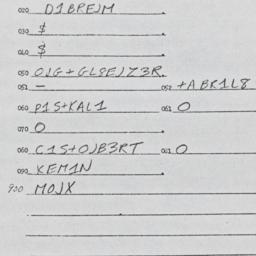 020 D1BREJM
030 $
040 $
050 OJG+GL8EJZ3R.
051 — 052 +ABK1L8
060 P1S+KAL1 061 O
070 O
080 C1S+OJB3RT 081 O
090 KEM1N
900 MOJX